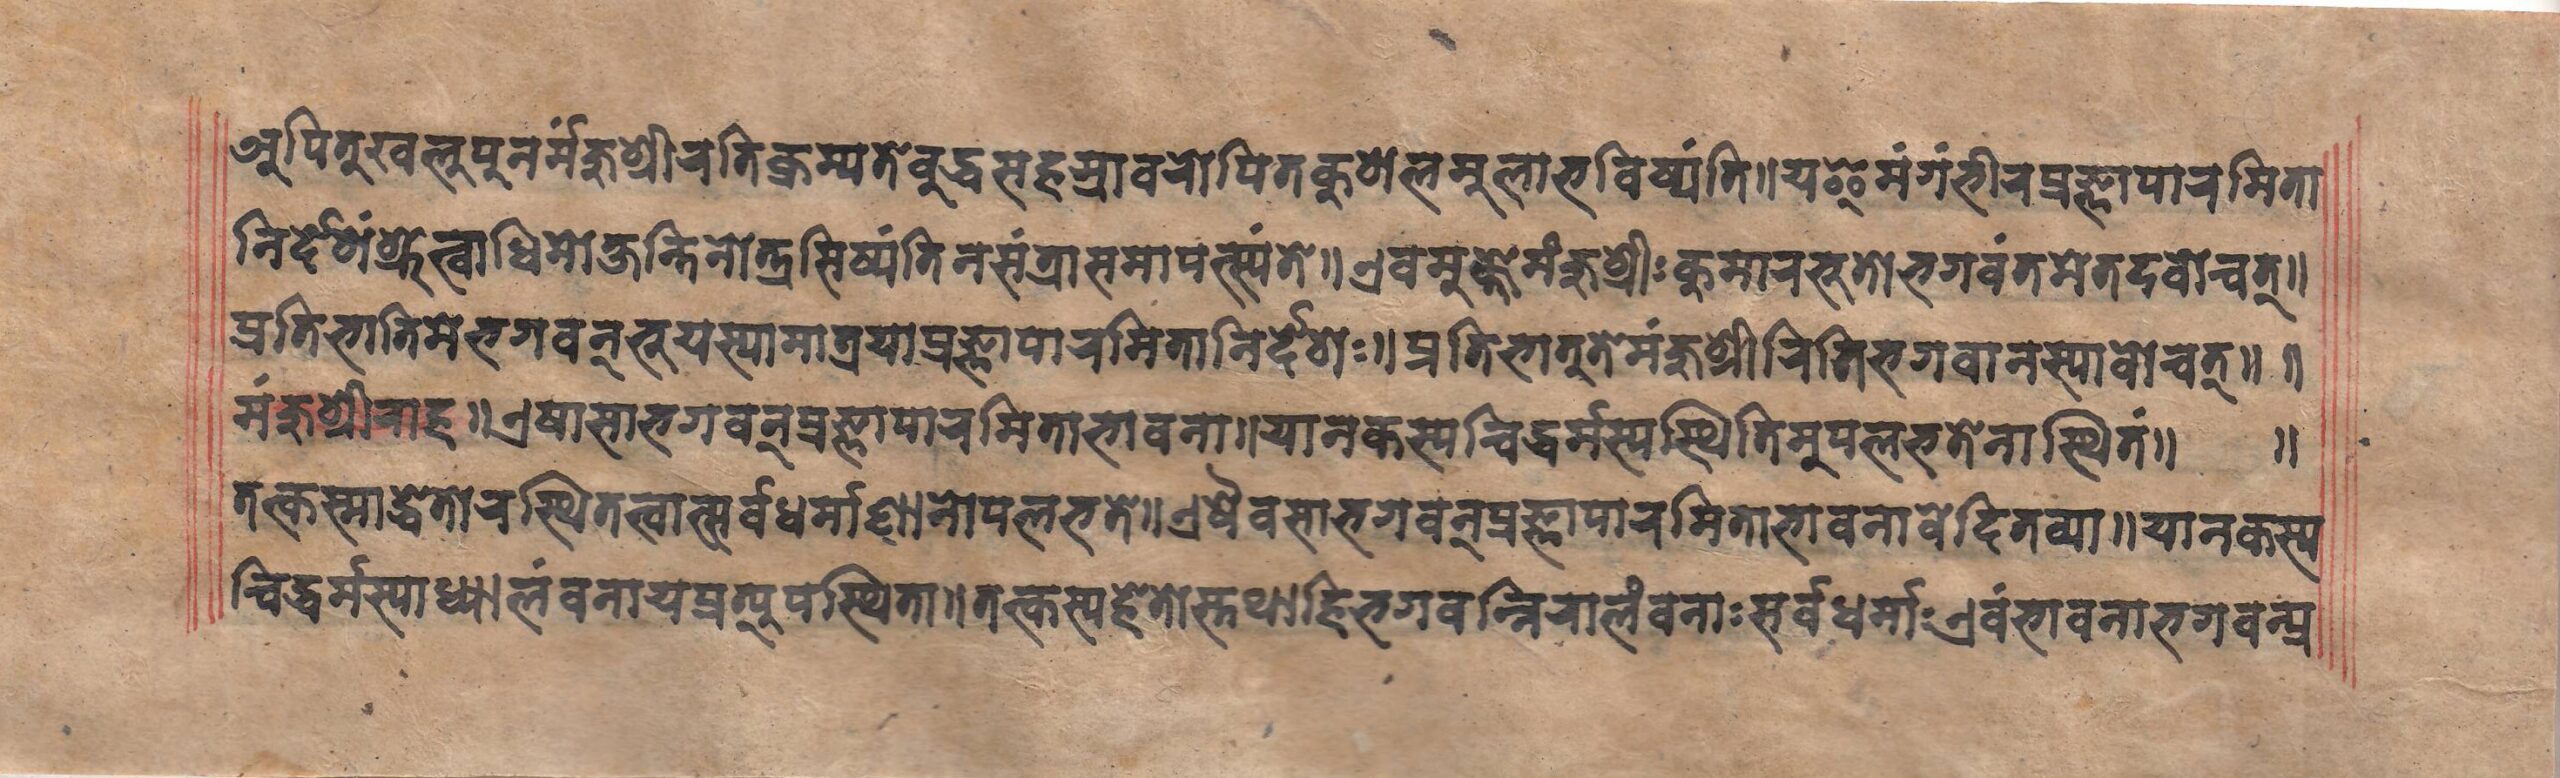 अपि तु खलु पुनर्मंजुश्रीरतिक्रम्य ते बुद्धसहस्रावरोपितकुशलमुला भविष्यंति॥ य इमं गंभीरप्रज्ञापारमिता
निर्देशं श्रुत्वाधिमोक्ष्यन्ति नोत्त्रसिष्यंति न संत्रासमापत्स्यंते॥ एवमुक्ते मंजुश्रीः कुमारभुतो भगवंतमेतदवोचत्॥
प्रतिभाति मे भगवन् भुयस्या मात्रया प्रज्ञापारमितानिर्देशः॥ प्रतिभातु ते मंजुश्रीरिति भगवानस्यावोचत्॥ ॥
मंजुश्रीराह॥ एषा सा भगवन् प्रज्ञापारमिताभावना॥ या न कस्यचिद्धर्मस्य स्थितिमुपलभते नास्थितं॥ ॥
तत्कस्माद्धेतोरस्थितत्वात्सर्वधर्माणां नोपलभते॥ एषैव सा भगवन् प्रज्ञापारमिताभावना वेदितव्या॥ या न कस्य
चिद्धर्मस्याध्यालंवनाय प्रत्युपस्थिता॥ तत्कस्य हेतोस्तथा हि भगवन्निरालंवनाः सर्वधर्माः एवं भावना भगवन्प्र